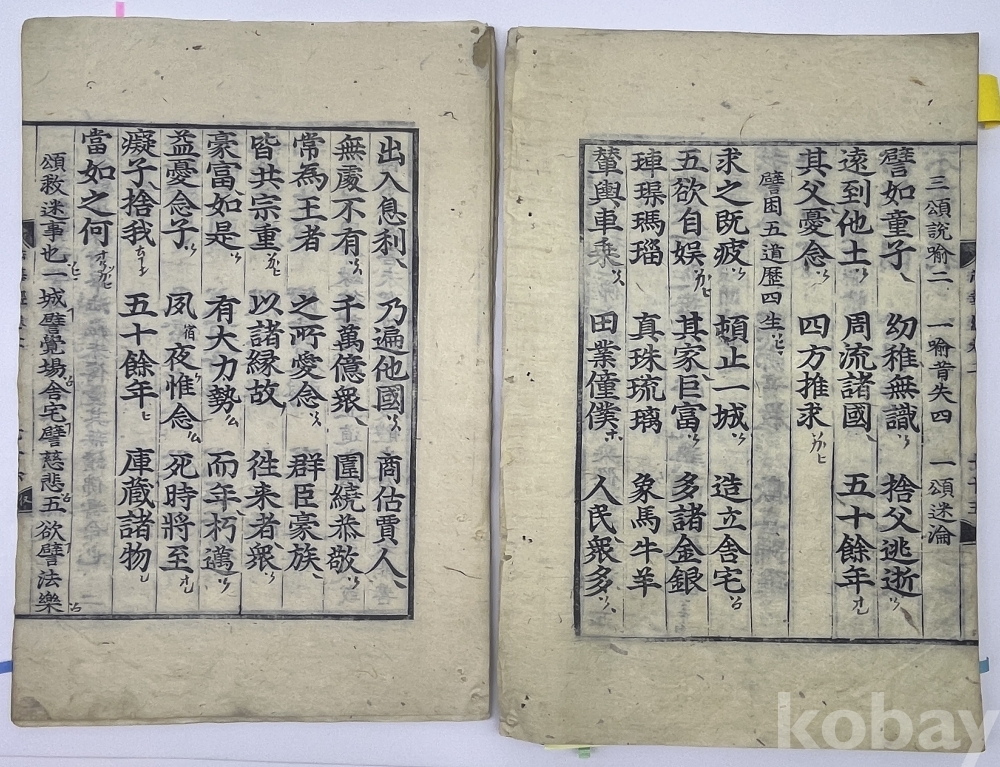 三頌說喻二 一喻昔失四 一頌迷淪
譬如童子 幼稚無識 捨父逃逝
遠到他土 周流諸國 五十餘年
其父憂念 四方推求
譬困五道歷四生
求之既疲 頓止一城 造立舍宅
五欲自娛 其家巨富 多諸金銀
硨磲瑪瑙 真珠琉璃 象馬牛羊
輦輿車乘 田業僮僕 人民衆多
出入息利 乃遍他國 商估賈人
無處不有 千萬億衆 圍繞恭敬
常為王者 之所愛念 群臣豪族
皆共宗重 以諸緣故 徃来者衆
豪富如是 有大力勢 而年朽邁
益憂念子 夙夜惟念 死時將至
癡子捨我 五十餘年 庫藏諸物
當如之何
頌救迷事也一城譬覺場舍宅譬慈悲五欲譬法樂
kobay